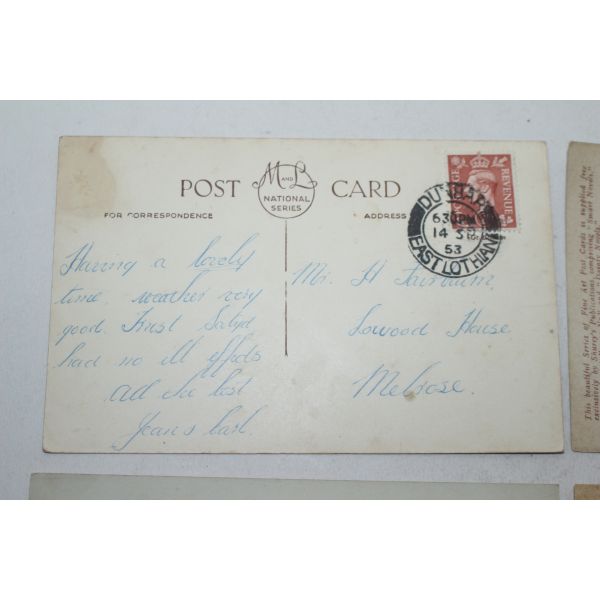 POST CARD
M AND L
NATIONAL
SERIES
FOR CORRESPONDENCE
ADDRESS
REVENUE
DUNBAR
6 30 PM
14 SP
53
EAST LOTHIAN
Having a lovely
time, weather very
good. Trust Satyd
had no ill effects
All the best
Jean & Earl.
Mr. H Fairbairn,
Lowood House
Melrose.
This beautiful Series of Fine Art Post Cards is supplied free
exclusively by Shurey's Publications, comprising "Smart Novels,"